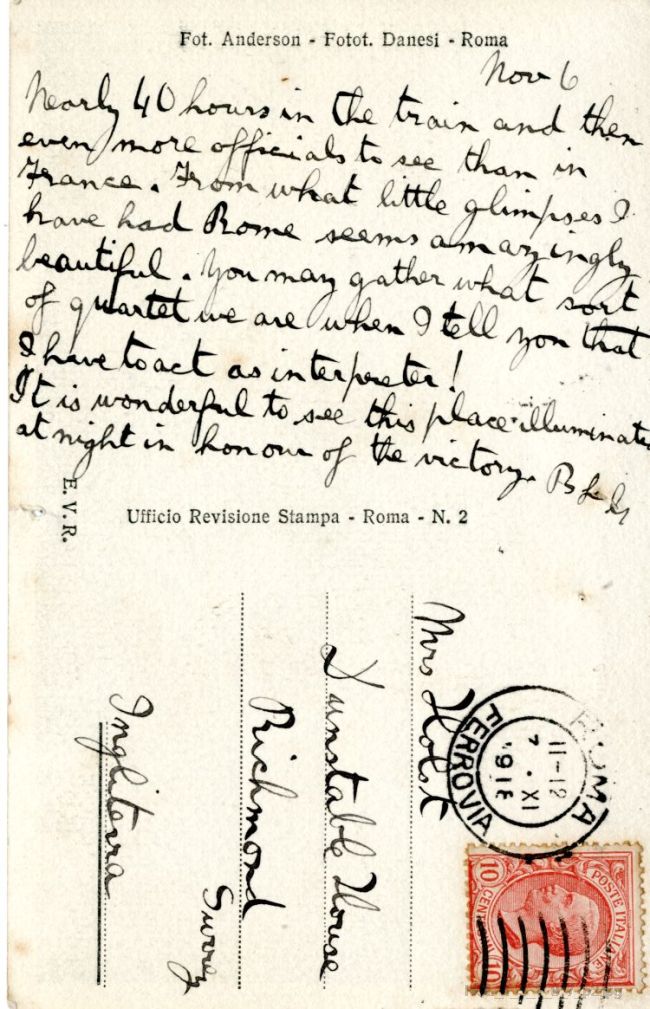 Fot. Anderson - Fotot. Danesi - Roma
Nov 6
Nearly 40 hours in the train and then
even more officials to see than in
France. From what little glimpses I
have had Rome seems amazingly
beautiful. You may gather what sort
of quartet we are when I tell you that
I have to act as interpreter!
It is wonderful to see this place illuminated
at night in honour of the victory.
E. V. R.
Ufficio Revisione Stampa - Roma - N. 2
Mrs Holst
Dunstable House
Richmond
Surrey
Inghilterra
ROMA
FERROVIA
11-12
7 · XI
POSTE ITALIANE
10 CENT 10